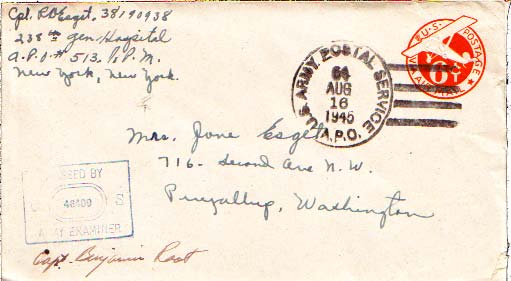 Cpl. R.D. Esget, 38190938
238th Gen. Hospital
A.P.O. # 513. % P.M.
New York, New York.
U.S. POSTAGE
6¢
AIR MAIL
U.S. ARMY POSTAL SERVICE
AUG
16
1945
A.P.O.
Mrs. Jane Esget
716 - Second Ave N.W.
Puyallup, Washington
PASSED BY
U S
48409
ARMY EXAMINER
Capt. Benjamin Root